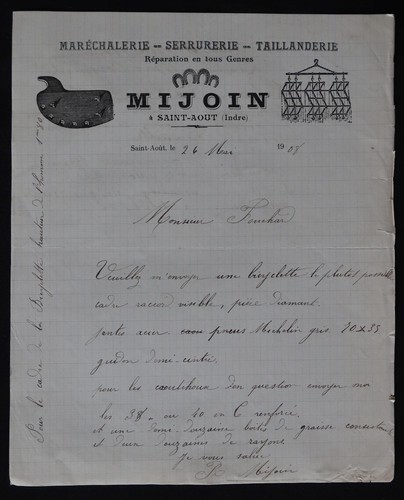 MARÉCHALERIE — SERRURERIE — TAILLANDERIE
Réparation en tous Genres
MIJOIN
à SAINT-AOUT (Indre)
Saint-Août, le 26 Mars 1908
Monsieur
Veuillez m'envoyer une bicyclette le plutot possible
cadre raccord visible, père diamant
jantes acier pneus Michelin gris 70x35
guidon demi-cintré
pour les caoutchouc d'en question envoyer moi
les 38 ou 40 en C renforcé
et une demi-douzaine boites de graisse consistante
et deux douzaines de rayons
Je vous salue
Mijoin
Pour le cadre de la Bicyclette hauteur de l'homme 1m70